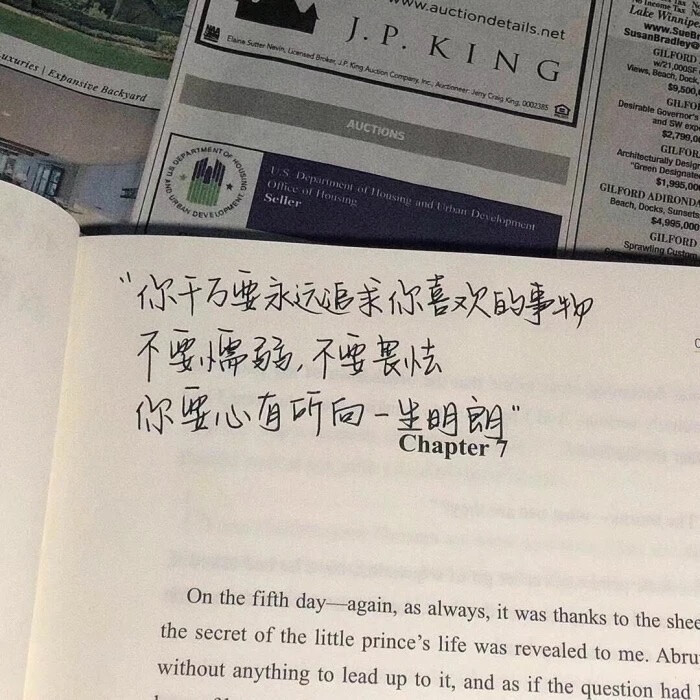 www.auctiondetails.net
J.P. KING
Elaine Sutter Nevin, Licensed Broker, J.P. King Auction Company, Inc.; Auctioneer: Jerry Craig King, 0002385
uxuries | Expansive Backyard
AUCTIONS
U.S. DEPARTMENT OF HOUSING AND URBAN DEVELOPMENT
U.S. Department of Housing and Urban Development
Office of Housing
Seller
No Income Tax
Lake Winnipe
www.SueBr
SusanBradleyD
GILFORD
w/21,000SF
Views, Beach, Dock,
$9,500,
GILFO
Desirable Governor's
and 5W exp
$2,799,0
GILFOR
Architecturally Design
"Green Designate
$1,995,00
GILFORD ADIRONDA
Beach, Docks, Sunsets
$4,995,000
GILFORD
Sprawling Custom
“你千万要永远追求你喜欢的事物
不要懦弱,不要畏怯
你要心有所向一生明朗”
Chapter 7
On the fifth day—again, as always, it was thanks to the shee
the secret of the little prince’s life was revealed to me. Abru
without anything to lead up to it, and as if the question had